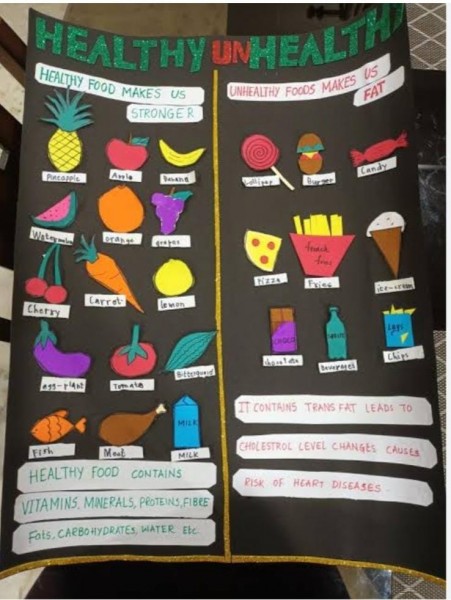 HEALTHY UNHEALTHY
HEALTHY FOOD MAKES US
STRONGER
Pineapple Apple Banana
Watermelon orange grapes
Cherry Carrot lemon
egg-plant Tomato Bitterguard
Fish Meat MILK
MILK
HEALTHY FOOD CONTAINS
VITAMINS, MINERALS, PROTEINS, FIBRE
Fats, CARBOHYDRATES, WATER Etc.
UNHEALTHY FOODS MAKES US
FAT
Lollipop Burger Candy
french
fries
Pizza Fries ice-cream
CHOCO
chocolate beverages Chips
IT CONTAINS TRANS FAT LEADS TO
CHOLESTROL LEVEL CHANGES CAUSES
RISK OF HEART DISEASES